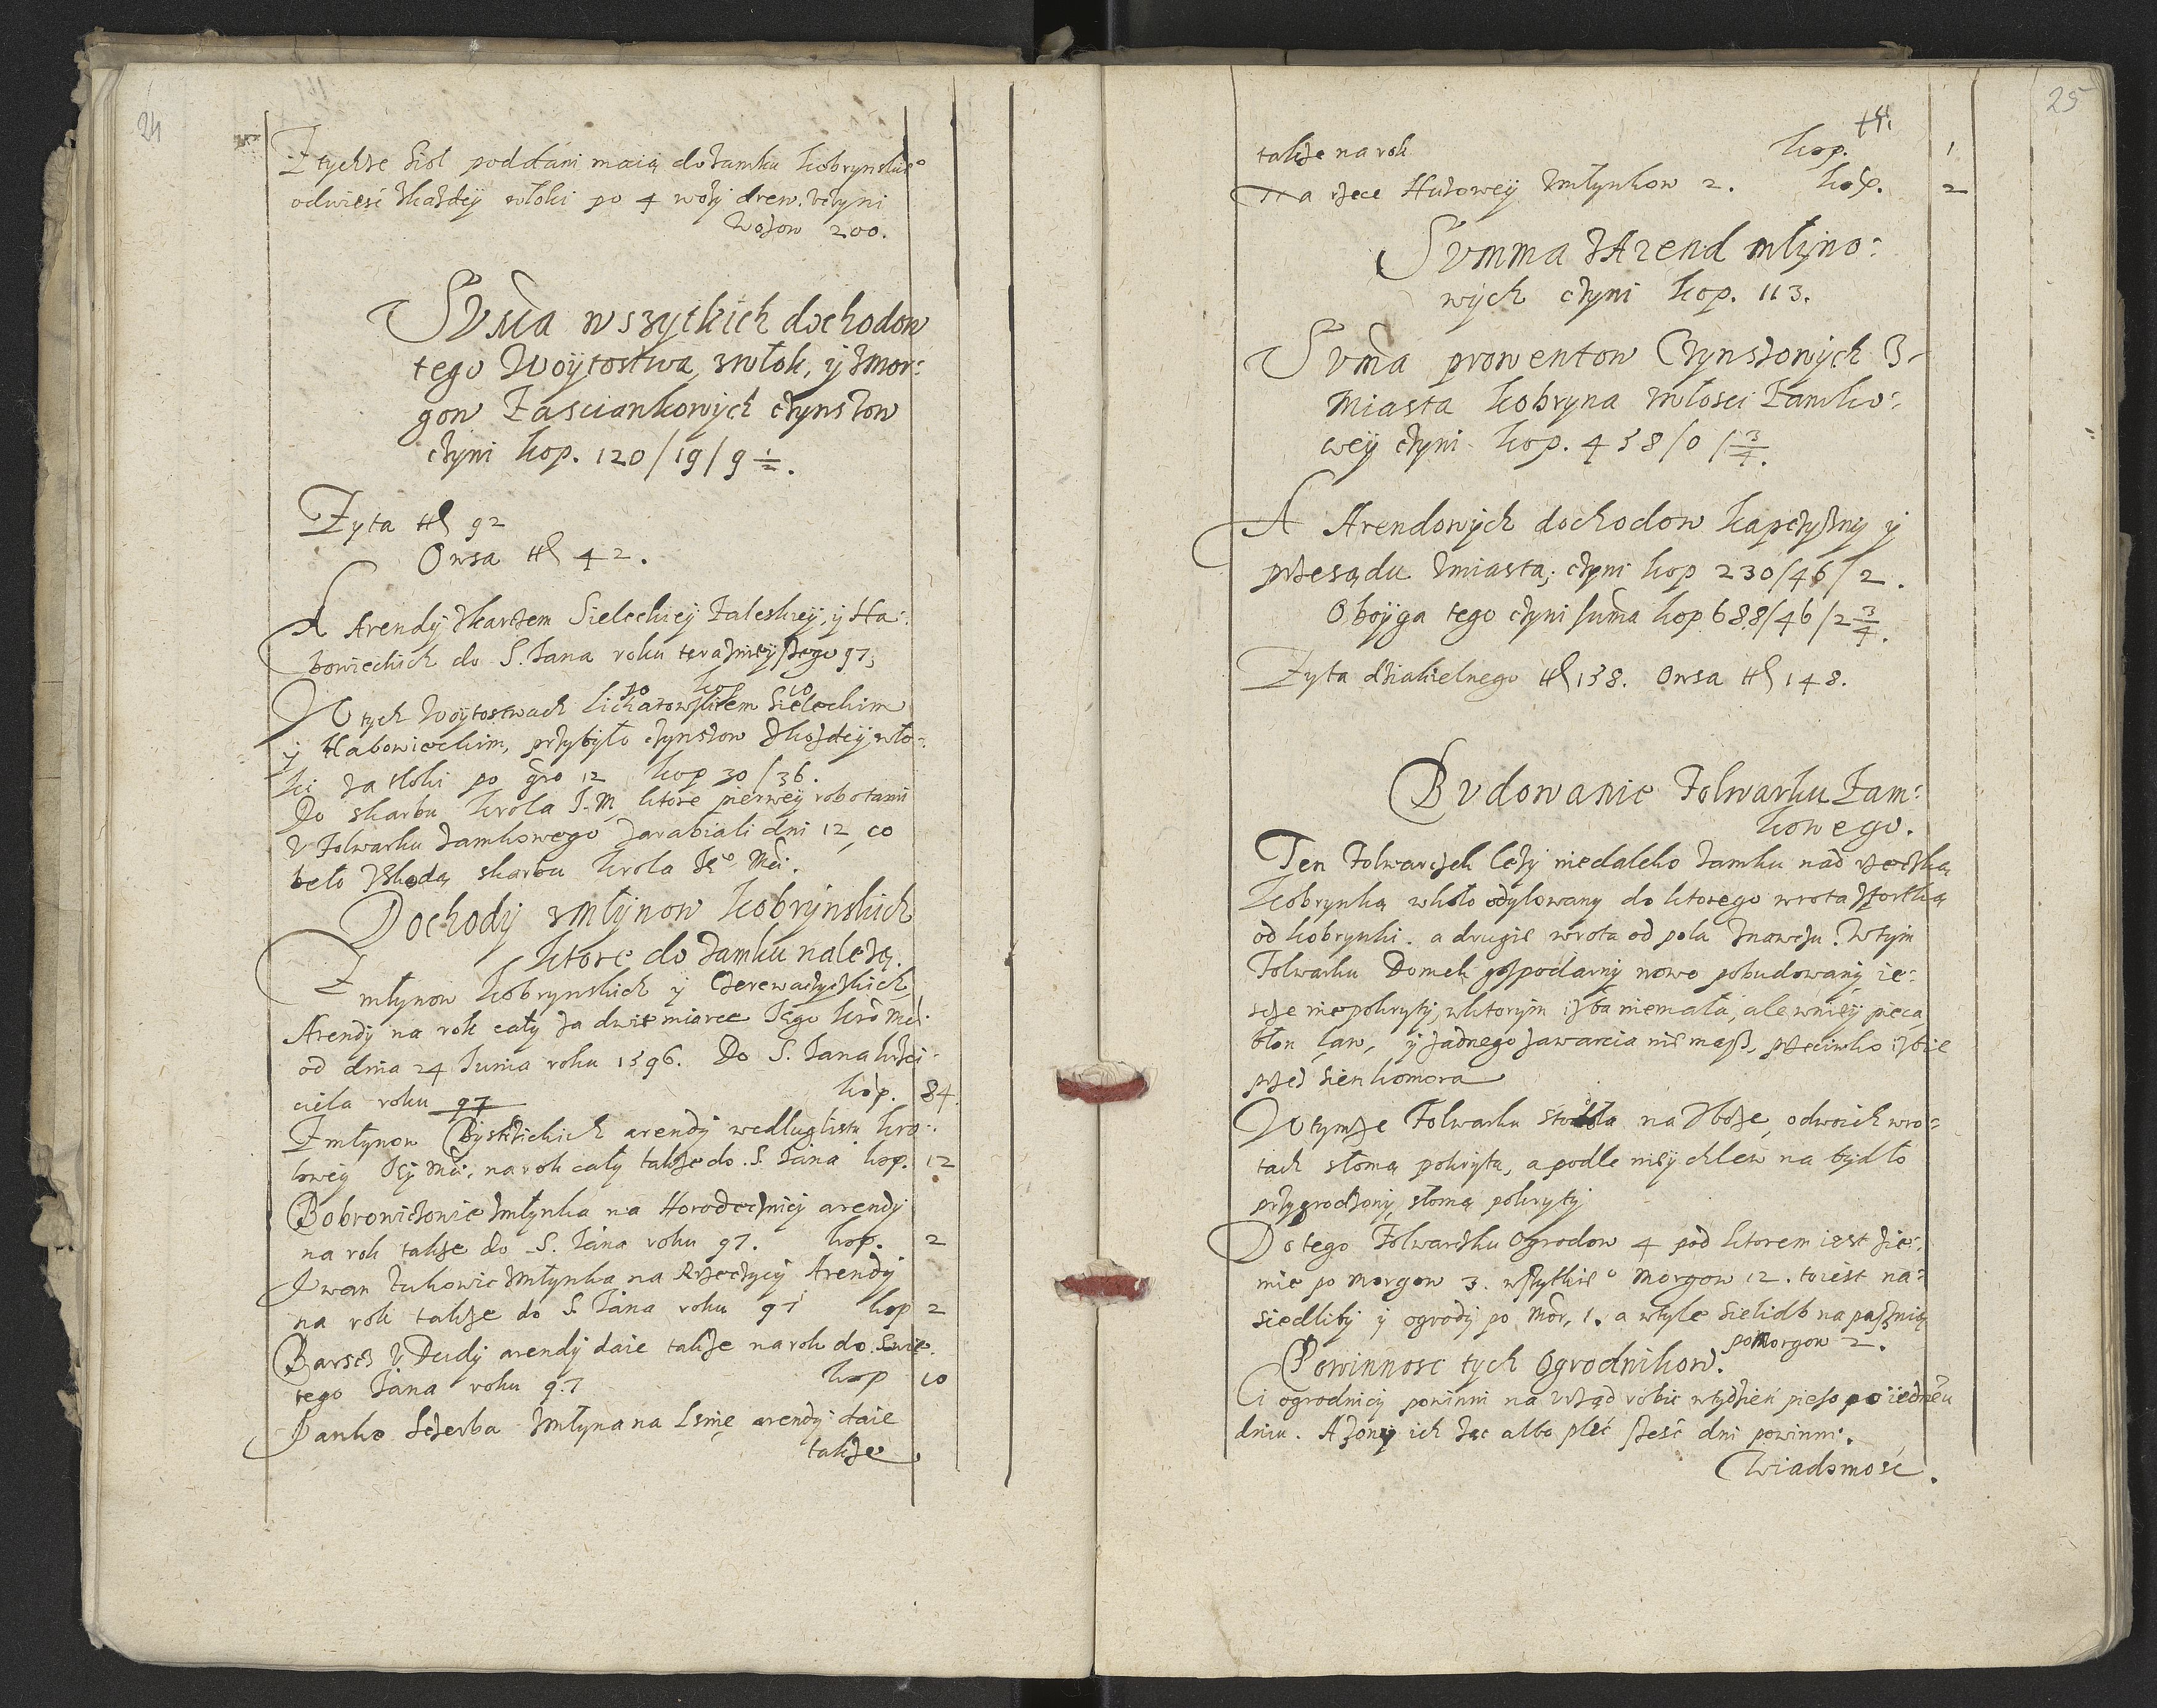 24
Z tychże Siol poddani maią do Zamku Kobrynskieº
odwiesć zkażdy włoki po 4 woźy drew. Vczyni
Wozow 200.
Suma wszytkich dochodow
tego Woytostwa, zwłok, y zmor:
gow Zasciankowych czynszow
czyni kop. 120/19/9 1/2.
Zyta 92
Owsa 42.
A Arendy zkarczem Sieleckiey Zaleskiey, y Ha:
bowieckich do S. Jana roku teraznieyszego 97,
W tych Woytostwach Lichatowskiem Sieleckim
y Habowieckim, przybyło czynszow zkożdey wło:
ki za tłoki po gro 12 kop 30/36.
Do skarbu Krola J. M. ktore pierwey robotami
V Folwarku Zamkowego zarabiali dni 12, co
beło zszkodą skarbu Krola Jeº Mci.
Dochody zmłynow Kobrynskich
ktore do Zamku należą.
Z młynow Kobrynskich y Czerewaczyckich
Arendy na rok cały za dwie miarce Jego Kro Mci
od dnia 24 Junia roku 1596. Do S. Jana krzci:
ciela roku 97 kop. 84.
Z młynow Bystrickich arendy wedlug listu Kro:
lowey Jey Mci, na rok cały takze do S. Jana kop. 12
Bobrowiczowie zmłynka na Horodecznicy arendy
na rok takze do S. Jana roku 97. kop. 2
Iwan Zukowic zmłynka na Rzeczycy Arendy
na rok takze do S. Jana roku 97 kop 2
Barscz y Dudy arendy daie takze na rok do Swię
tego Jana roku 97 kop 10
Panko Sczerba zmłyna na Lsnię arendy daie
takze
25
takze na rok kop. 1
Na rzece Huzowey zmłynkow 2. kop. 2
Summa zArend młyno:
wych czyni kop. 113.
Suma prowentow Czynszowych z
Miasta Kobryna włosci Zamko:
wey czyni kop. 458/0/3/4.
A Arendowych dochodow kapczyzny y
przesądu zmiasta, czyni kop 230/46/2.
Oboyga tego czyni suma kop 688/46/2 3/4.
Zyta dziakielnego 138. Owsa 148.
Budowanie Folwarku Zam:
kowego.
Ten Folwarczek leży niedaleko Zamku nad rzeczką
Kobrynką wkoło odylowany do ktorego wrota zfortką
od Kobrynki. a drugie wrota od pola znawozu. W tym
Folwarku Domek gospodarny nowo pobudowany ie:
scze nie pokryty, wktorym izba niemała, ale wniey pieca
błon law, y zadnego zawarcia nie masz, przeciwko izbie
przed Sien komora
W tymze Folwarku stodoła na zboże, odwoich wro:
tach słomą pokryta, a podle niey chlew na bydło
przygrodzony, słomą pokryty
Do tego Folwarzku Ogrodow 4 pod ktorem iest zie:
mie po morgow 3. wszytkieº Morgow 12. to iest na:
siedliby y ogrody po Mor, 1. a wtyle Sielidb na paszniǫ
po Morgow 2.
Powinnosc tych Ogrodnikow.
Ci ogrodnicy powinni na Vrząd robic wtydzień pieszo po iednem
dniu. A żony ich żąc albo pleć szesć dni powinni.
Wiadomość.